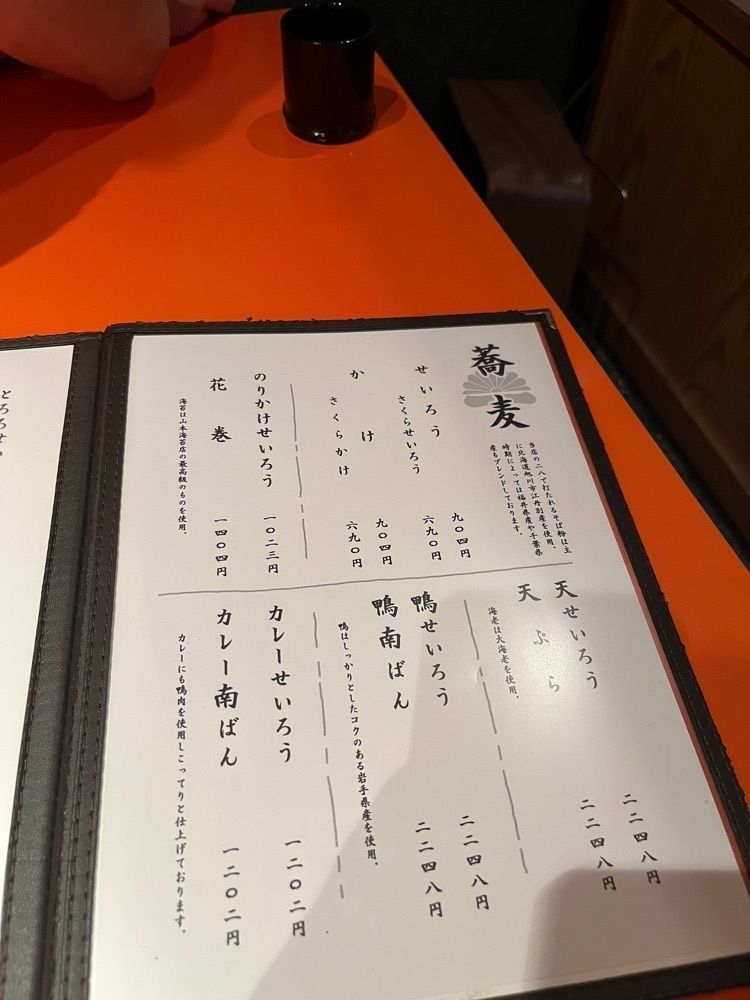 蕎麦
当店の二八で打たれるそば粉は主
に北海道旭川市江丹別産を使用、
時期によっては福井県産や千葉県
産もブレンドしております。
せいろう 九〇四円
さくらせいろう 六九〇円
かけ 九〇四円
さくらかけ 六九〇円
のりかけせいろう 一〇二三円
花巻 一四〇四円
海苔は山本海苔店の最高級のものを使用。
天せいろう 二二四八円
天ぷら 二二四八円
海老は大海老を使用。
鴨せいろう 二二四八円
鴨南ばん 二二四八円
鴨はしっかりとしたコクのある岩手県産を使用。
カレーせいろう 一二〇二円
カレー南ばん 一二〇二円
カレーにも鴨肉を使用しこってりと仕上げております。
とろろせ